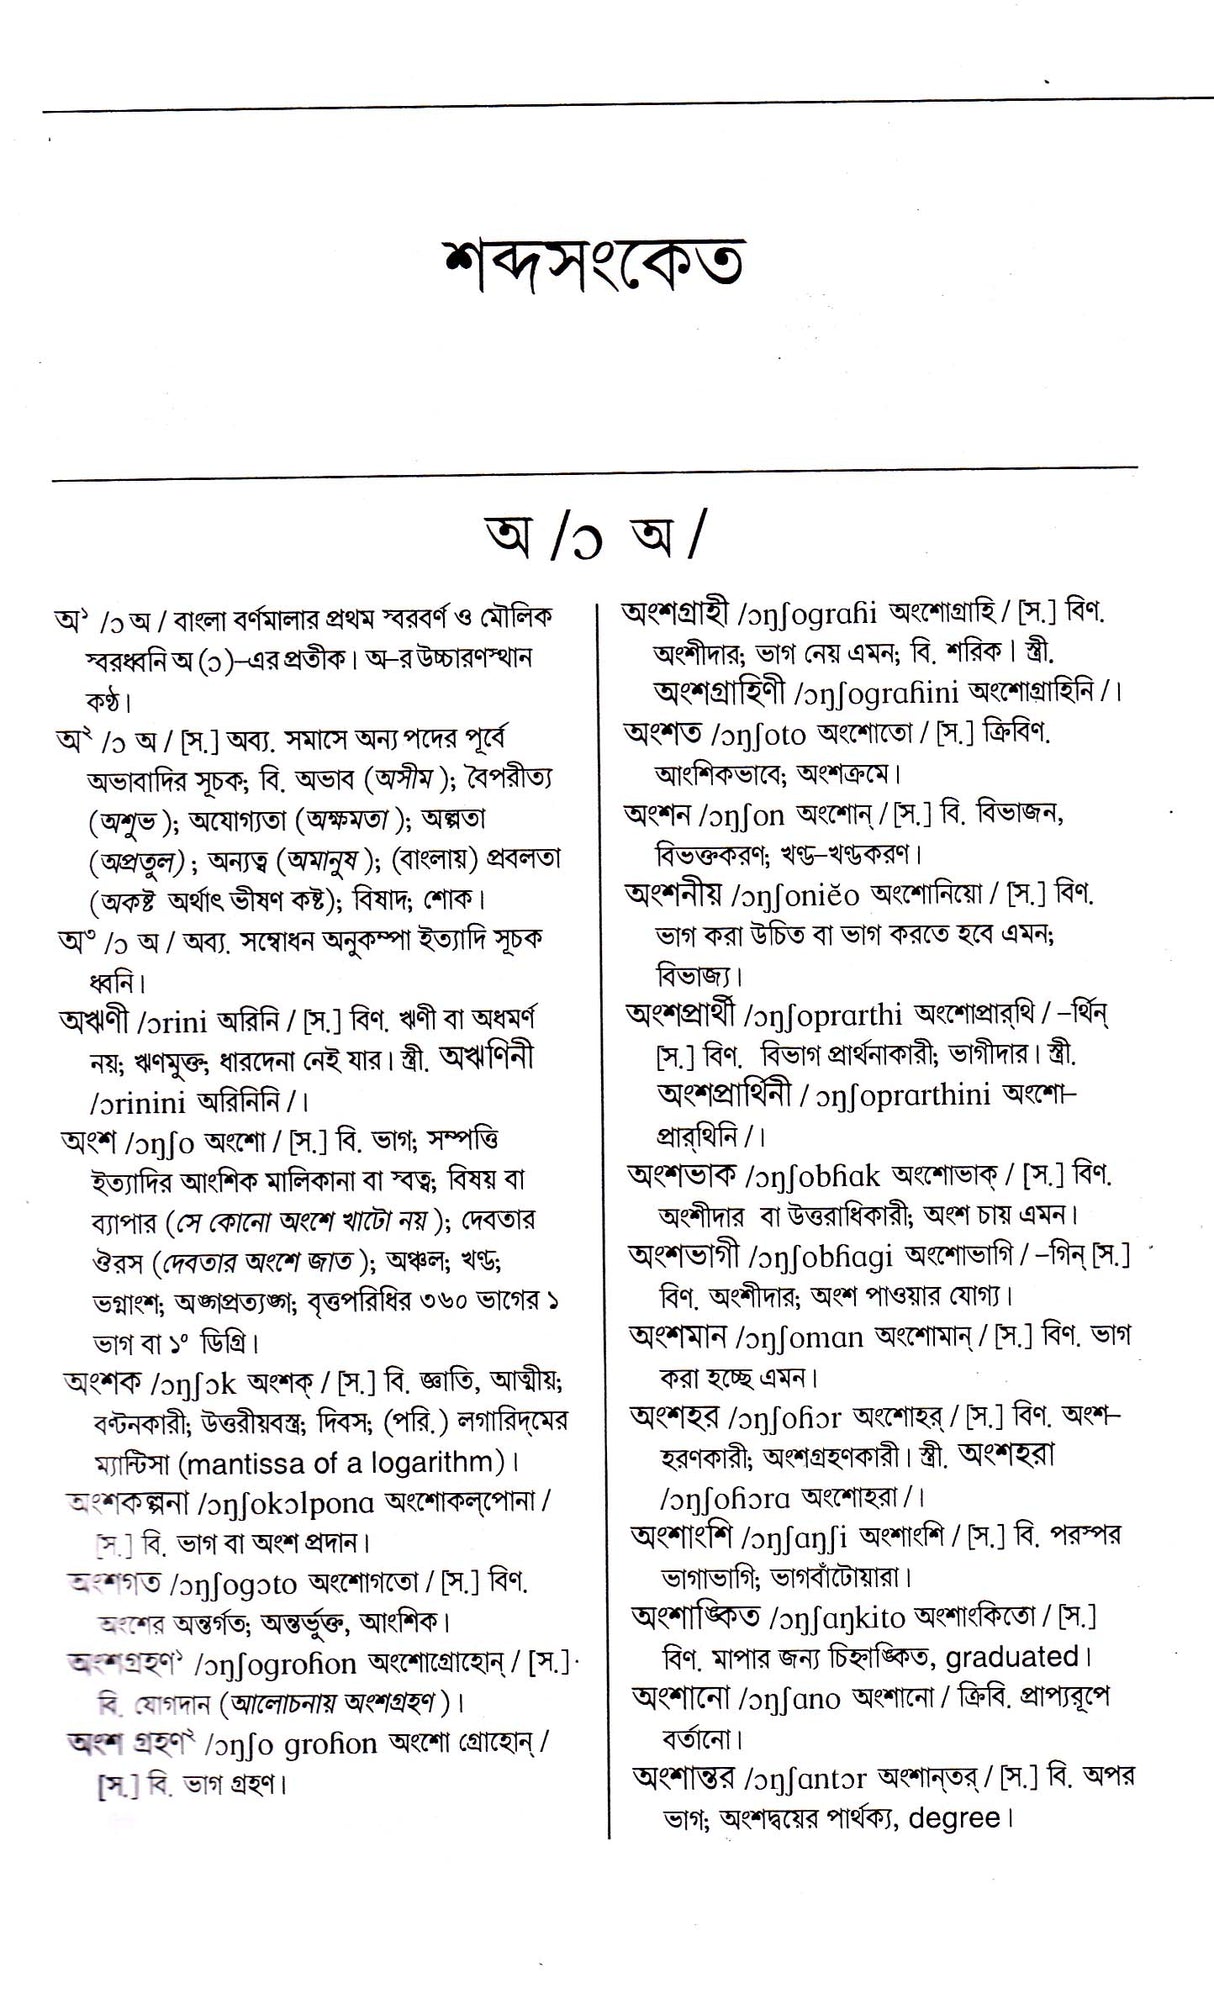 শব্দসংকেত
অ /ɔ অ /
অ১ /ɔ অ / বাংলা বর্ণমালার প্রথম স্বরবর্ণ ও মৌলিক
স্বরধ্বনি অ (ɔ)–এর প্রতীক। অ–র উচ্চারণস্থান
কণ্ঠ।
অ২ /ɔ অ / [স.] অব্য. সমাসে অন্য পদের পূর্বে
অভাবাদির সূচক; বি. অভাব (অসীম); বৈপরীত্য
(অশুভ); অযোগ্যতা (অক্ষমতা); অল্পতা
(অপ্রতুল); অন্যত্ব (অমানুষ); (বাংলায়) প্রবলতা
(অকষ্ট অর্থাৎ ভীষণ কষ্ট); বিষাদ; শোক।
অ৩ /ɔ অ / অব্য. সম্বোধন অনুকম্পা ইত্যাদি সূচক
ধ্বনি।
অঋণী /ɔrini অরিনি / [স.] বিণ. ঋণী বা অধমর্ণ
নয়; ঋণমুক্ত; ধারদেনা নেই যার। স্ত্রী. অঋণিনী
/ɔrinini অরিনিনি /।
অংশ /ɔŋʃo অংশো / [স.] বি. ভাগ; সম্পত্তি
ইত্যাদির আংশিক মালিকানা বা স্বত্ব; বিষয় বা
ব্যাপার (সে কোনো অংশে খাটো নয়); দেবতার
ঔরস (দেবতার অংশে জাত); অঞ্চল; খণ্ড;
ভগ্নাংশ; অঙ্গপ্রত্যঙ্গ; বৃত্তপরিধির ৩৬০ ভাগের ১
ভাগ বা ১° ডিগ্রি।
অংশক /ɔŋʃɔk অংশক্ / [স.] বি. জ্ঞাতি, আত্মীয়;
বণ্টনকারী; উত্তরীয়বস্ত্র; দিবস; (পরি.) লগারিদ্‌মের
ম্যান্টিসা (mantissa of a logarithm)।
অংশকল্পনা /ɔŋʃokɔlpona অংশোকল্‌পোনা /
[স.] বি. ভাগ বা অংশ প্রদান।
অংশগত /ɔŋʃogɔto অংশোগতো / [স.] বিণ.
অংশের অন্তর্গত; অন্তর্ভুক্ত, আংশিক।
অংশগ্রহণ১ /ɔŋʃogroɦon অংশোগ্রোহোন্ / [স.]
বি. যোগদান (আলোচনায় অংশগ্রহণ)।
অংশ গ্রহণ২ /ɔŋʃo groɦon অংশো গ্রোহোন্ /
[স.] বি. ভাগ গ্রহণ।
অংশগ্রাহী /ɔŋʃograɦi অংশোগ্রাহি / [স.] বিণ.
অংশীদার; ভাগ নেয় এমন; বি. শরিক। স্ত্রী.
অংশগ্রাহিণী /ɔŋʃograɦini অংশোগ্রাহিনি /।
অংশত /ɔŋʃoto অংশোতো / [স.] ক্রিবিণ.
আংশিকভাবে; অংশক্রমে।
অংশন /ɔŋʃon অংশোন্ / [স.] বি. বিভাজন,
বিভক্তকরণ; খণ্ড–খণ্ডকরণ।
অংশনীয় /ɔŋʃoniĕo অংশোনিয়ো / [স.] বিণ.
ভাগ করা উচিত বা ভাগ করতে হবে এমন;
বিভাজ্য।
অংশপ্রার্থী /ɔŋʃoprarthi অংশোপ্রার্‌থি / –র্থিন্
[স.] বিণ. বিভাগ প্রার্থনাকারী; ভাগীদার। স্ত্রী.
অংশপ্রার্থিনী / ɔŋʃoprarthini অংশো–
প্রার্‌থিনি /।
অংশভাক /ɔŋʃobɦak অংশোভাক্ / [স.] বিণ.
অংশীদার বা উত্তরাধিকারী; অংশ চায় এমন।
অংশভাগী /ɔŋʃobɦagi অংশোভাগি / –গিন্ [স.]
বিণ. অংশীদার; অংশ পাওয়ার যোগ্য।
অংশমান /ɔŋʃoman অংশোমান্ / [স.] বিণ. ভাগ
করা হচ্ছে এমন।
অংশহর /ɔŋʃoɦɔr অংশোহর্ / [স.] বিণ. অংশ–
হরণকারী; অংশগ্রহণকারী। স্ত্রী. অংশহরা
/ɔŋʃoɦɔra অংশোহরা /।
অংশাংশি /ɔŋʃaŋʃi অংশাংশি / [স.] বি. পরস্পর
ভাগাভাগি; ভাগবাঁটোয়ারা।
অংশাঙ্কিত /ɔŋʃaŋkito অংশাংকিতো / [স.]
বিণ. মাপার জন্য চিহ্নাঙ্কিত, graduated।
অংশানো /ɔŋʃano অংশানো / ক্রিবি. প্রাপ্যরূপে
বর্তানো।
অংশান্তর /ɔŋʃantɔr অংশান্‌তর্ / [স.] বি. অপর
ভাগ; অংশদ্বয়ের পার্থক্য, degree।